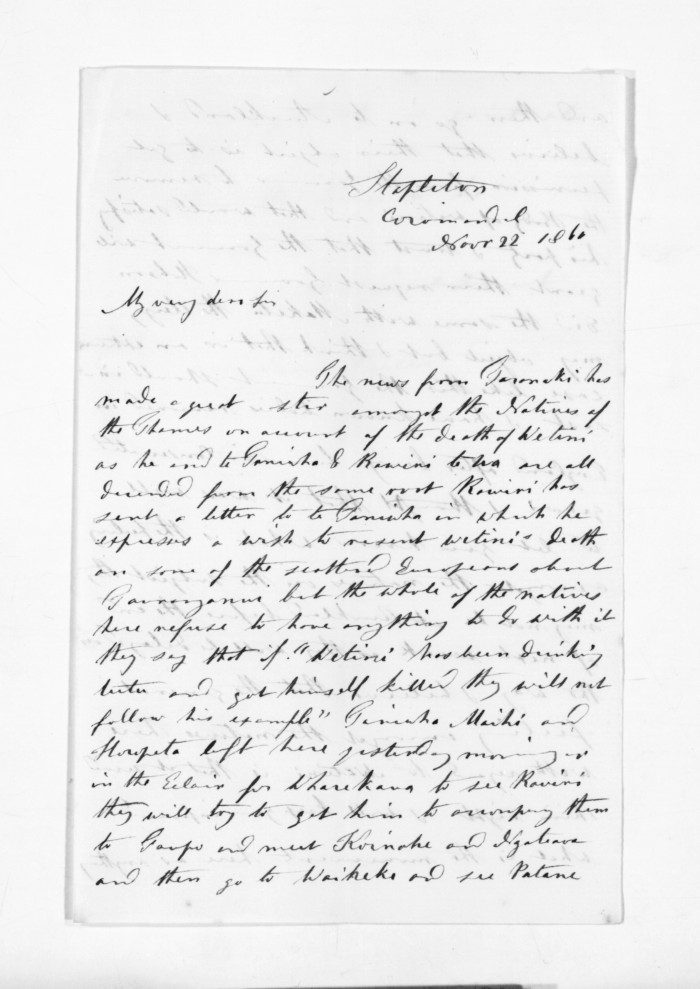 Stapleton
Coromandel
Novr 22 1860
My very dear Sir
The news from Taranaki has
made a great ster amongst the Natives of
the Thames on account of the death of Wetini
as he and te Taniwha & Rawiri te Ua are all
decended from the same root Rawiri has
sent a letter to te Taniwha in which he
expresses a wish to resent wetini's death
on some of the scatterd Europeans about
but the whole of the natives
here refuse to have anything to do with it
they say that if "Wetini has been drinking
tutu and got himself killed they will not
follow his example" Taniwha Maihi and
Houpeta left here yesterday morning
in the Eclair for Wharekawa to see Rawiri
they will try to get him to accompany them
to Taupo and meet Koinake and
and then go to Waiheke and see Patane